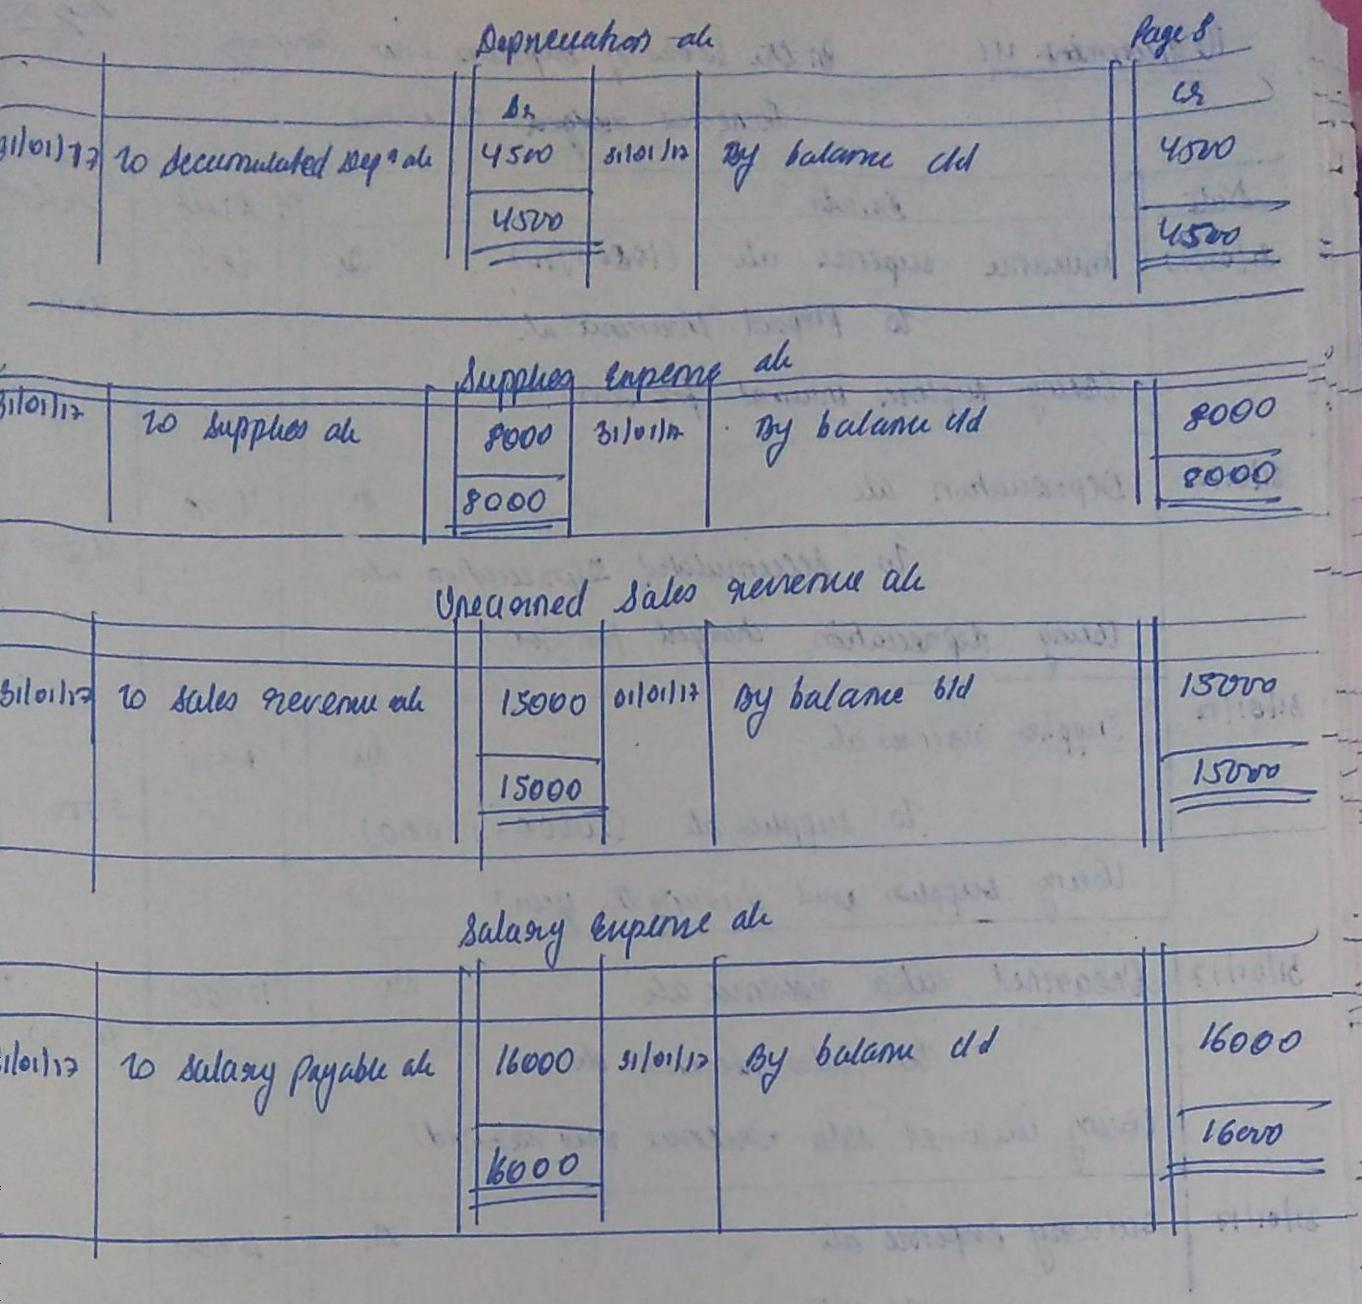 Depreciation a/c Page 8
Dr Cr
31/01/17 To Accumulated Dep n a/c 4500 31/01/17 By balance c/d 4500
4500 4500
Supplies Expense a/c
31/01/17 To Supplies a/c 8000 31/01/17 By balance c/d 8000
8000 8000
Unearned Sales revenue a/c
31/01/17 To Sales revenue a/c 15000 01/01/17 By balance b/d 15000
15000 15000
Salary Expense a/c
31/01/17 To Salary Payable a/c 16000 31/01/17 By balance c/d 16000
16000 16000